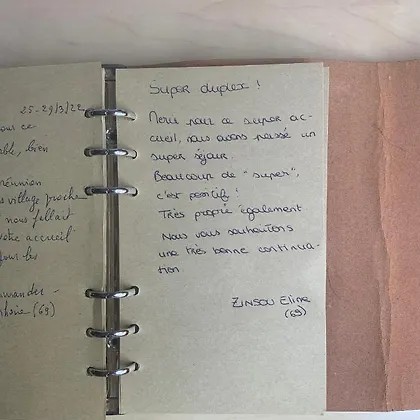 25-29/3/22
ce
bien
réunion
village proche
nous fallait
votre accueil
(69)
Super duplex !
Merci pour ce super ac-
cueil, nous avons passé un
super séjour.
Beaucoup de "super",
c'est positif !
Très propre également
Nous vous souhaitons
une très bonne continua-
tion.
ZINSOU Eline
(69)